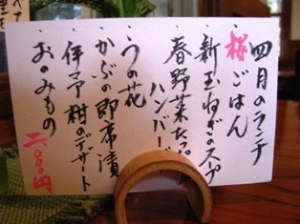 四月のランチ
・桜ごはん
・新玉ねぎのスープ
・春野菜たっぷり
ハンバーグ
・うの花
・かぶの即席漬
・伊予柑のデザート
・おのみもの
二〇〇〇円